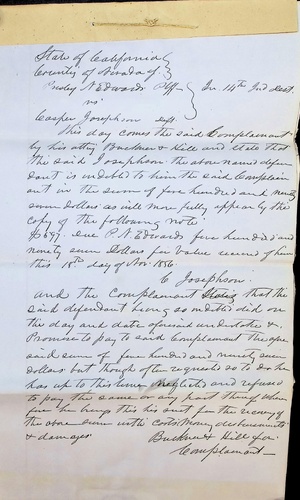 State of California
County of Nevada
Pusley N Edwards Plff
vs
In 14th Jud Dist
Casper Josephson Deft
This day comes the said Complainant
by his atty Buckner & Hill and state that
the said Josephson the above named defen
dant is indebted to him the said Complain
ant in the sum of five hundred and ninety
seven dollars as will more fully appear by the
copy of the following note
$597. Due P. N. Edwards five hundred and
ninety seven Dollars for value received of him
this 18th day of Nov. 1856
C Josephson
and the Complainant that the
said defendant being so indebted did on
the day and date aforesaid undertake &
Promise to pay to said Complainant the afore
said sum of five hundred and ninety seven
dollars but though often requested so to do he
has up to this time neglected and refused
to pay the same or any part thereof where
fore he brings this his suit for the recovery of
the above sum with costs disbursements
& damages
Buckner & Hill for
Complainant